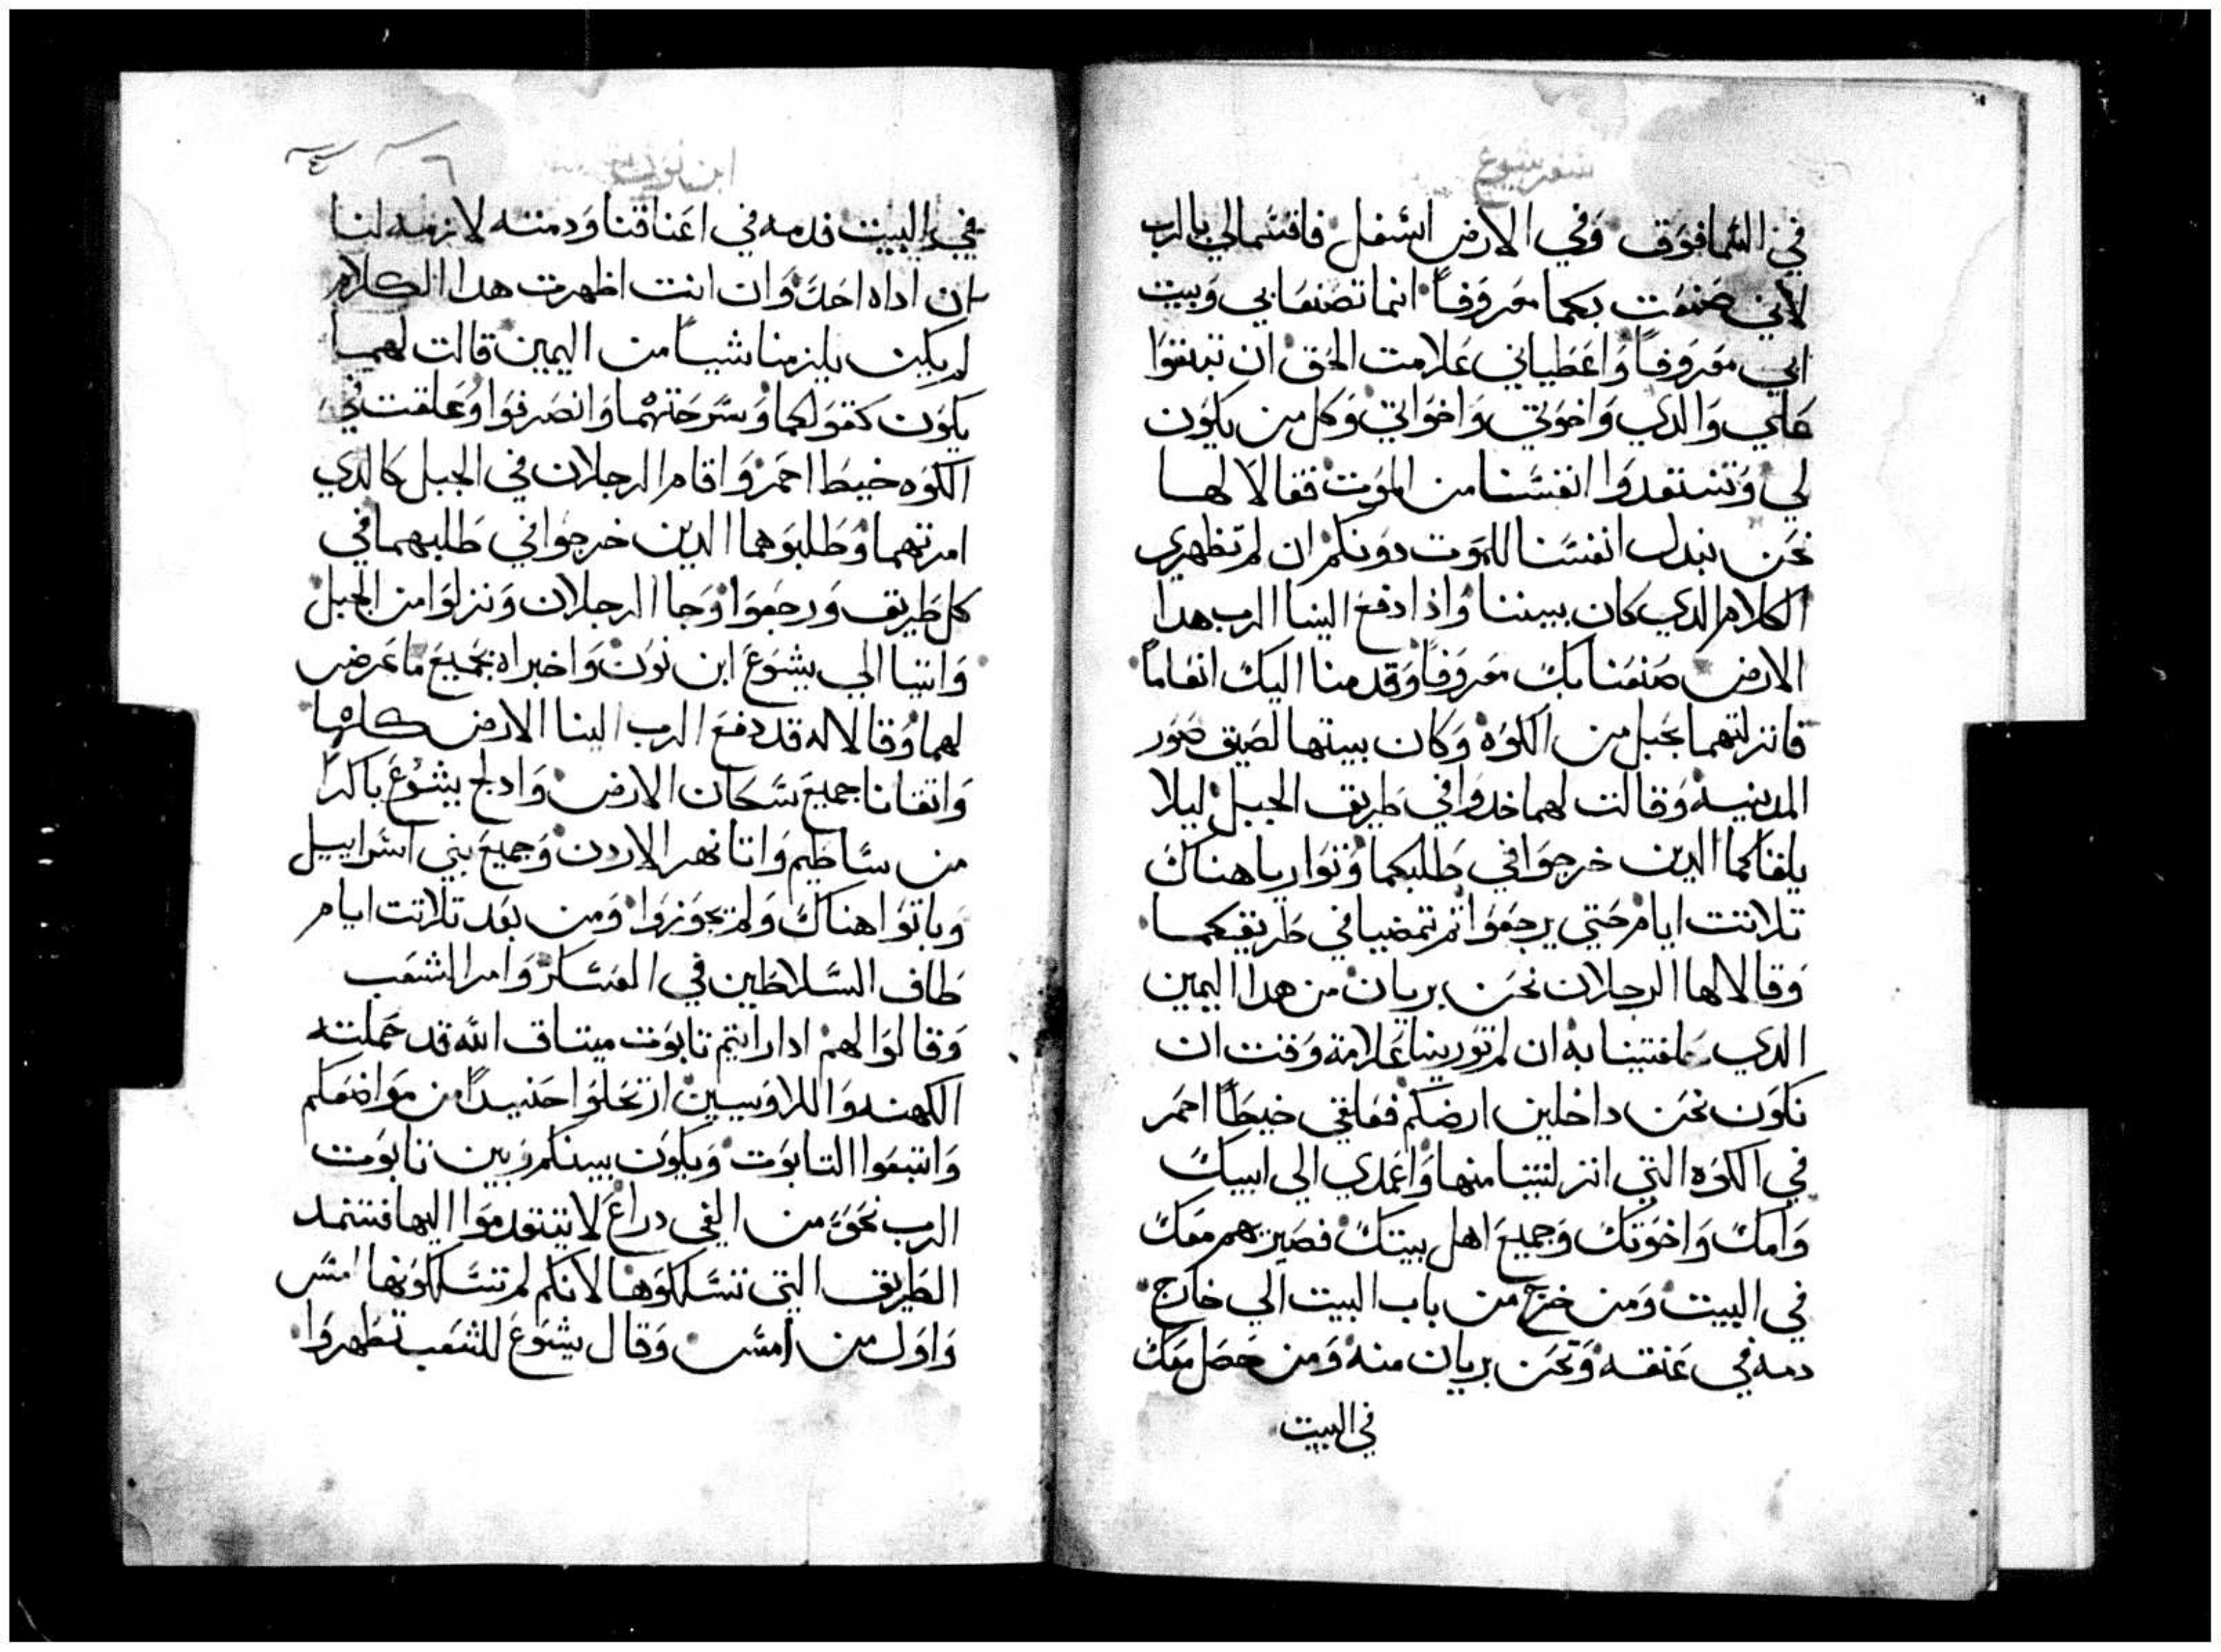 سفر يشوع
في السما فوق وفي الارض اسفل فاقسما لي بالرب
لأني صنعت بكما معروفاً انما تصنعا بي وبيت
ابي معروفاً واعطياني علامت الحق ان تبقوا
علي والدي واخوتي واخواتي وكل من يكون
لي وتستنقدوا انفسنا من الموت فقالا لها
نحن نبدل انفسنا للموت دونكم ان لم تظهري
الكلام الدي كان بيننا واذا دفع الينا الرب هدا
الارض صنعنا بك معروفاً وقدمنا اليك انعاماً
فانزلتهما بحبل من الكوه وكان بيتها لصيق صور
المدينه وقالت لهما خدوا في طريق الجبل ليلا
يلقاكما الدين خرجوا في طلبكما وتواريا هناك
تلاتت ايام حتي يرجعوا تم تمضيا في طريقكما
وقالا لها الرجلان نحن بريان من هدا اليمين
الدي حلفتينا به ان لم تورينا علامة وقت ان
نكون نحن داخلين ارضكم فعلقي خيطاً احمر
في الكوه التي انزلتينا منها واعمدي الي ابيك
وامك واخوتك وجميع اهل بيتك فصيريهم معك
في البيت ومن خرج من باب البيت الي خارج
دمه في عنقه ونحن بريان منه ومن حصل معك
في البيت
ابن نون
٦
في البيت فدمه في اعناقنا ودمته لازمه لنا
ان اداه احد وان انت اظهرت هدا الكلام
لم يكن يلزمنا شيأ من اليمين قالت لهما
يكون كقولكما وسرحتهما وانصرفوا وعلقت في
الكوه خيط احمر واقام الرجلان في الجبل كالدي
امرتهما وطلبوهما الدين خرجوا في طلبهما في
كل طريق ورجعوا وجا الرجلان ونزلوا من الجبل
واتيا الي يشوع ابن نون واخبراه بجميع ما عرض
لهما وقالا له قد دفع الرب الينا الارض كلها
واتقانا جميع سكان الارض وادلج يشوع باكراً
من ساطيم واتا نهر الاردن وجميع بني اسراييل
وباتوا هناك ولم يجوزوا ومن بعد تلاتت ايام
طاف السلاطين في العسكر وامر الشعب
وقالوا لهم ادا رايتم تابوت ميتاق الله قد حملته
الكهنه واللاويين ارتحلوا حنيداً من مواضعكم
واتبعوا التابوت ويكون بينكم وبين تابوت
الرب نحو من الفي دراع لا تتقدموا اليها
الطريق التي تسلكوها لانكم لم تسلكونها امس
واول من امس وقال يشوع للشعب تطهروا